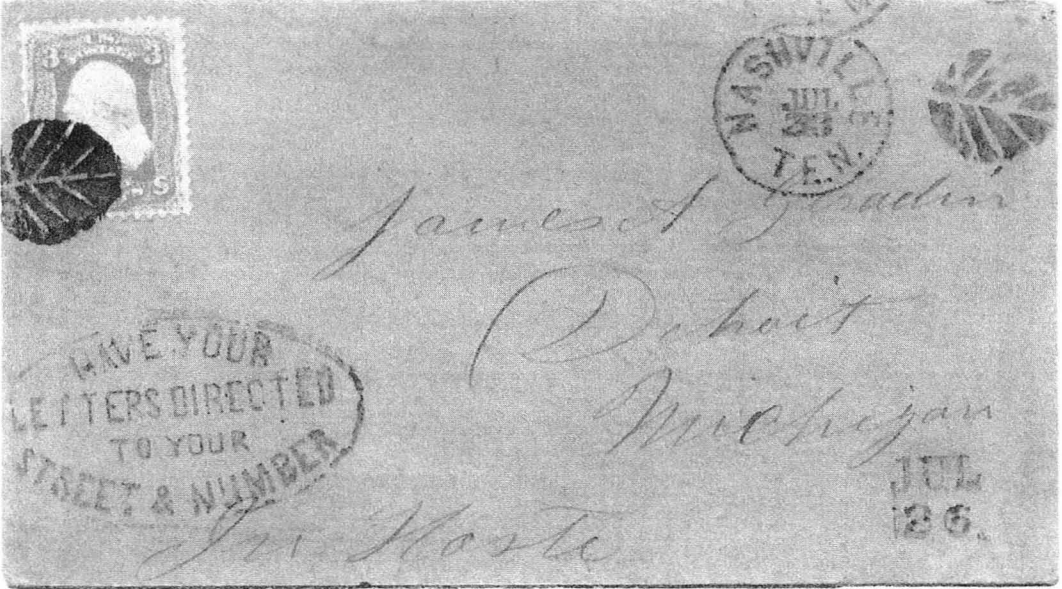 3 3
NASHVILLE
JUL
TEN.
James A
Detroit
Michigan
HAVE YOUR
LETTERS DIRECTED
TO YOUR
STREET & NUMBER
JUL
26.
In Haste